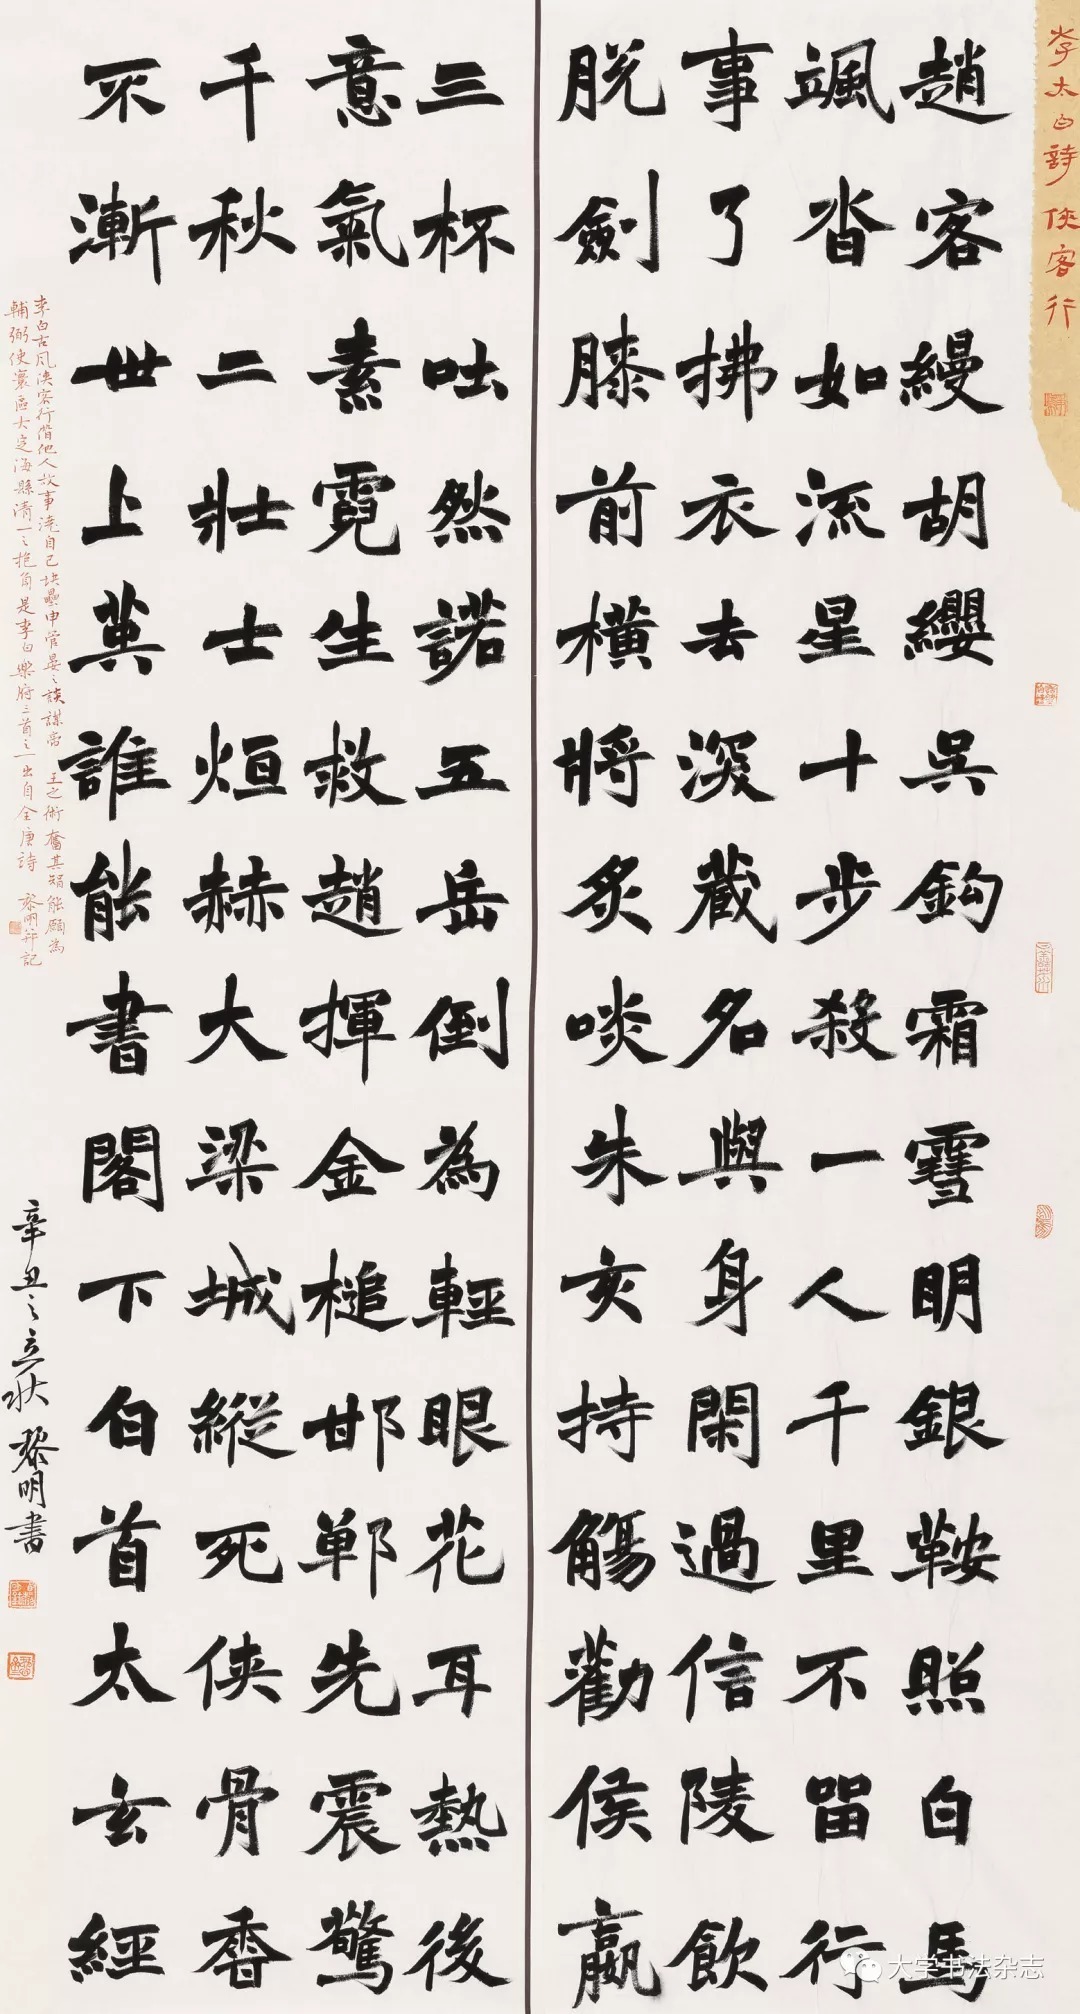 李太白詩 俠客行
趙客縵胡纓吳鈎霜雪明銀鞍照白馬
颯沓如流星十步殺一人千里不留行
事了拂衣去深藏名與身閑過信陵飲
脫劍膝前橫將炙啖朱亥持觴勸侯嬴
三杯吐然諾五岳倒為輕眼花耳熱後
意氣素霓生救趙揮金槌邯鄲先震驚
千秋二壯士烜赫大梁城縱死俠骨香
不漸世上英誰能書閣下白首太玄經
李白古风俠客行借他人故事澆自己块壘申管晏之談謀帝王之術奮其智能願為
輔弼使寰區大定海縣清一之抱負是李白樂府三首之一出自全唐詩 黎明并記
辛丑之立秋黎明書
大学书法杂志